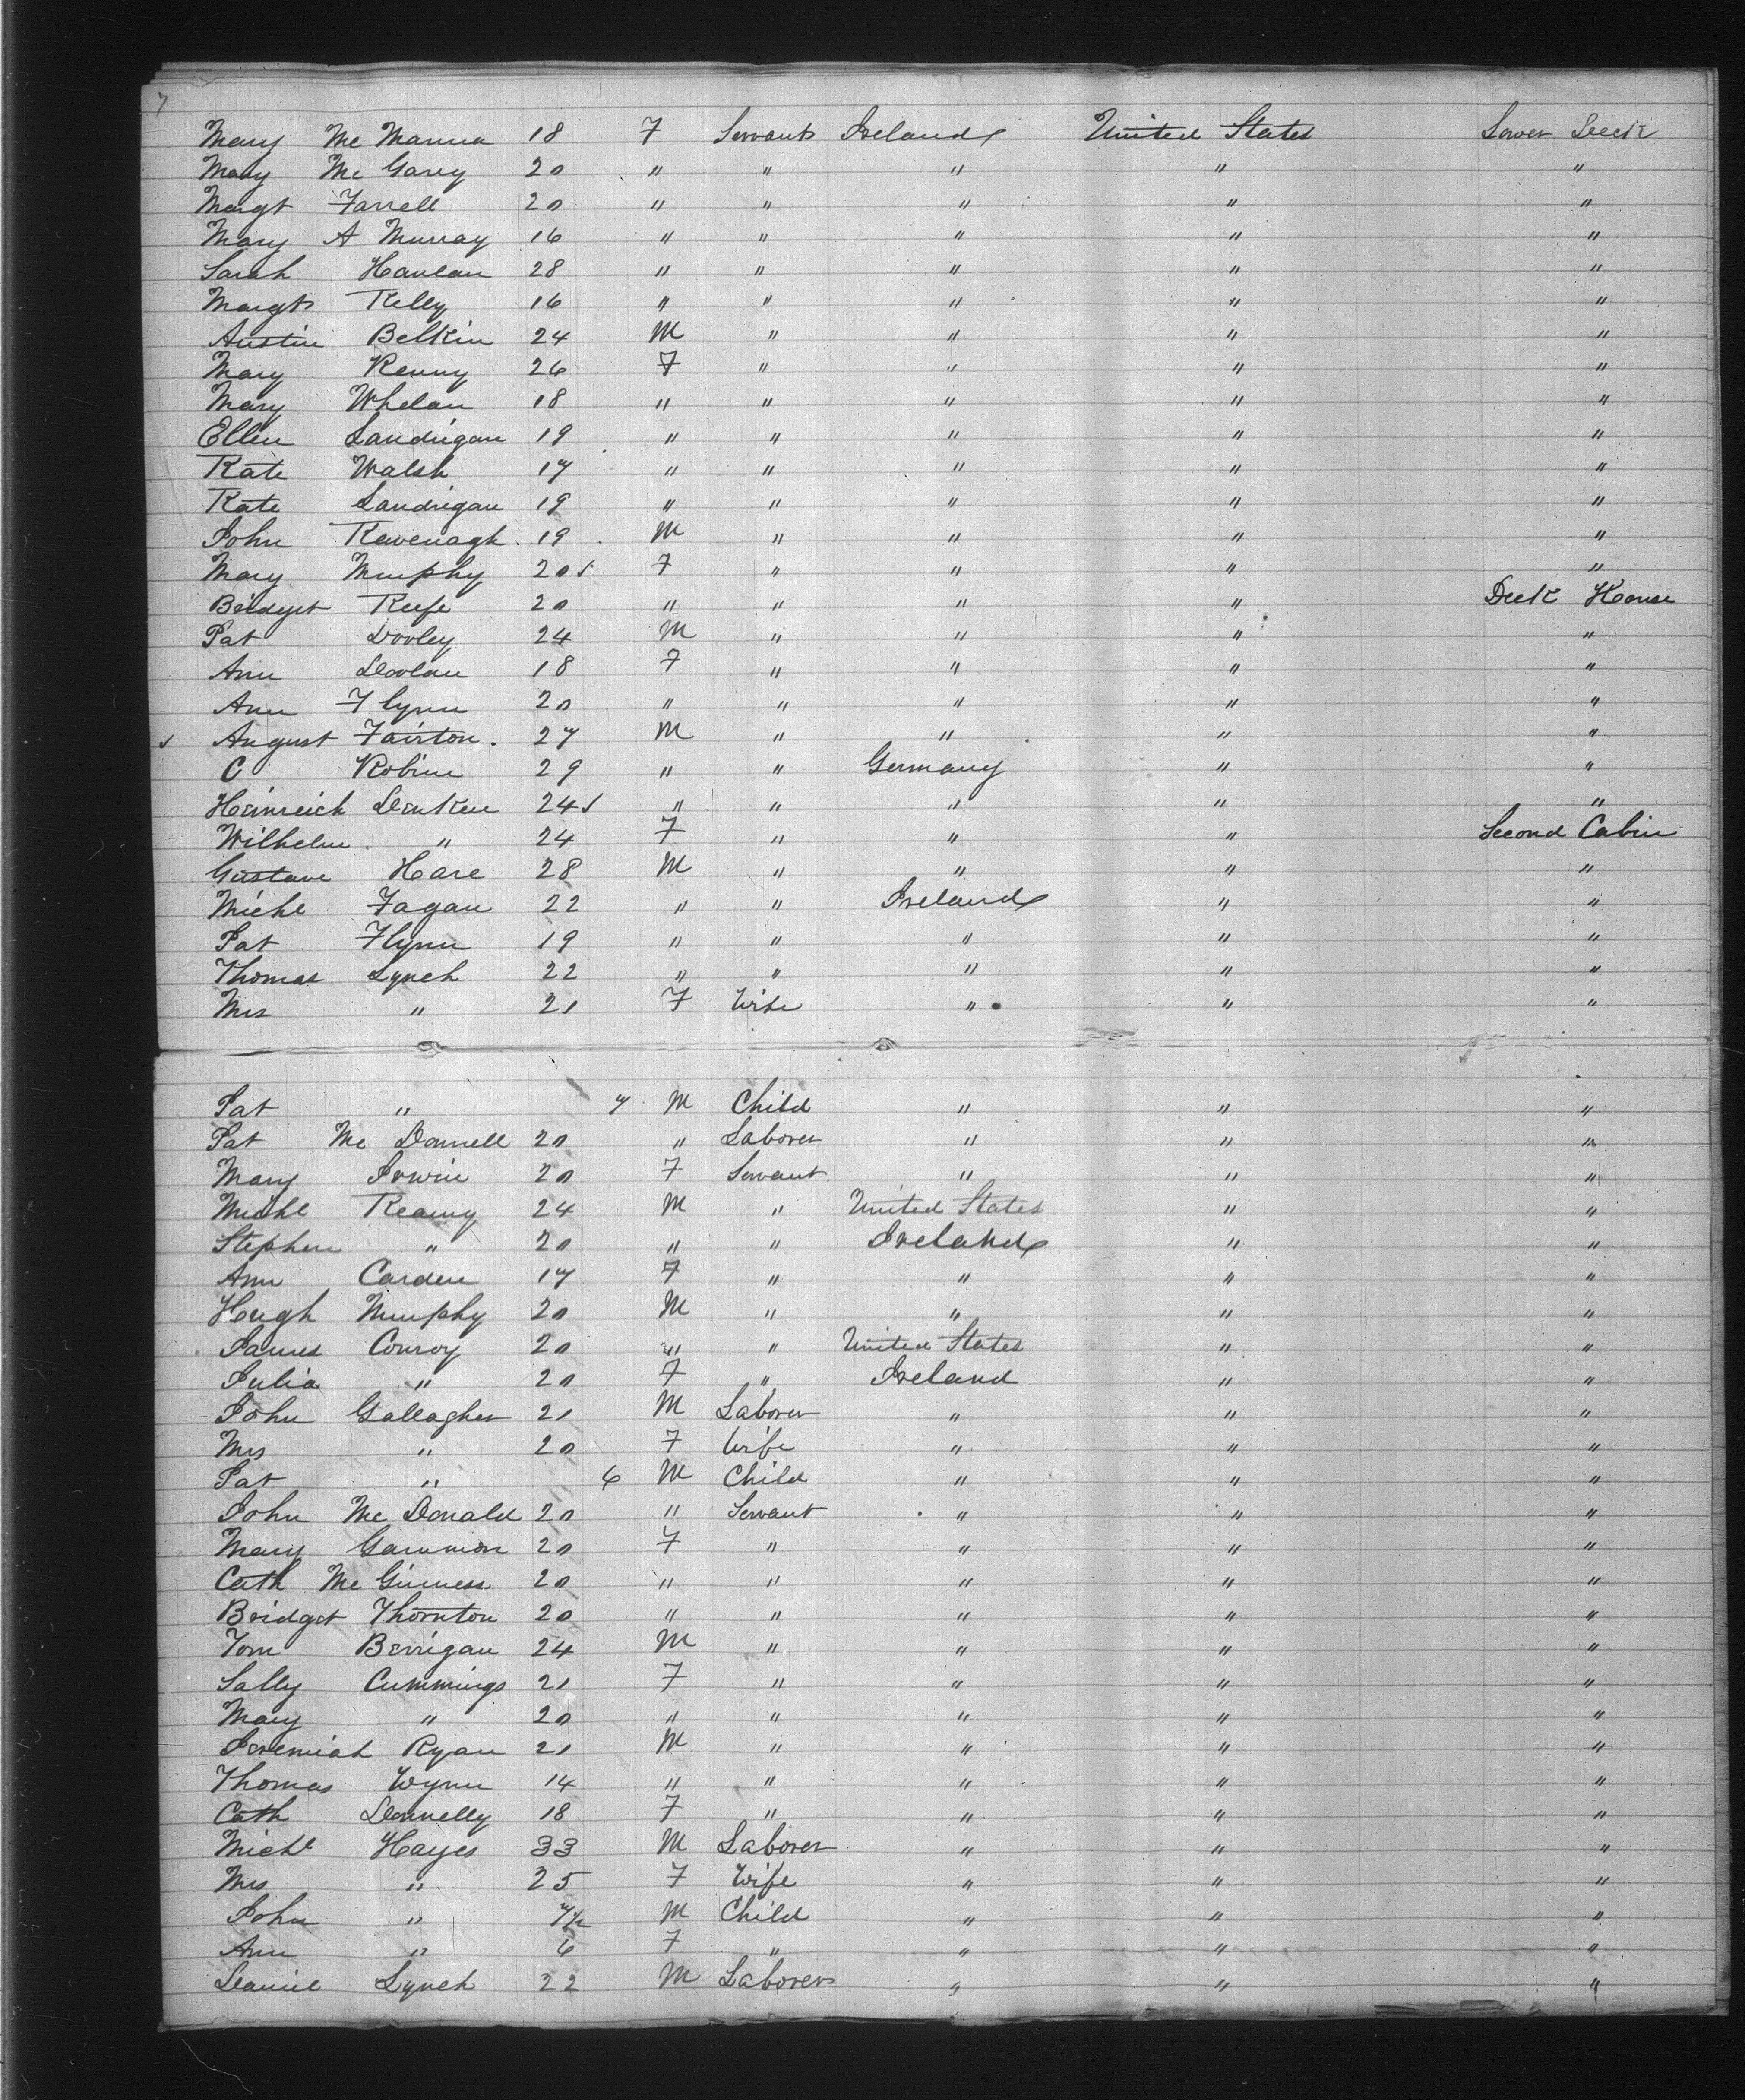 7
Mary Mc Manna 18 F Servants Ireland United States Lower Deck
Mary Mc Garry 20 " " " " "
Margt Farrell 20 " " " " "
Mary A Murray 16 " " " " "
Sarah Hanlan 28 " " " " "
Margt Kelly 16 " " " " "
Austin Belkin 24 M " " " "
Mary Kenny 26 F " " " "
Mary Whelan 18 " " " " "
Ellen Landrigan 19 " " " " "
Kate Walsh 17 " " " " "
Kate Landrigan 19 " " " " "
John Kavenagh 19 M " " " "
Mary Murphy 20 F " " " "
Bridget Keefe 20 " " " " Deck House
Pat Dooley 24 M " " " "
Ann Doolan 18 F " " " "
Ann Flynn 20 " " " " "
August Fairton 27 M " " " "
C Robine 29 " " Germany " "
Heinreich Denken 24 " " " " "
Wilhelm " 24 F " " " Second Cabin
Gustave Hare 28 M " " " "
Michl Fagan 22 " " Ireland " "
Pat Flynn 19 " " " " "
Thomas Lynch 22 " " " " "
Mrs " 21 F Wife " " "
Pat " 7 M Child " " "
Pat Mc Donnell 20 " Laborer " " "
Mary Irwin 20 F Servant " " "
Michl Keaney 24 M " United States " "
Stephen " 20 " " Ireland " "
Ann Carden 17 F " " " "
Hugh Murphy 20 M " " " "
James Conroy 20 " " United States " "
Julia " 20 F " Ireland " "
John Gallagher 21 M Laborer " " "
Mrs " 20 F Wife " " "
Pat " 6 M Child " " "
John Mc Donald 20 " Servant " " "
Mary Gammon 20 F " " " "
Cath Mc Ginness 20 " " " " "
Bridget Thornton 20 " " " " "
Tom Berrigan 24 M " " " "
Sally Cummings 21 F " " " "
Mary " 20 " " " " "
Jeremiah Ryan 21 M " " " "
Thomas Wynn 14 " " " " "
Cath Donnelly 18 F " " " "
Michl Hayes 33 M Laborer " " "
Mrs " 25 F Wife " " "
John " M Child " " "
Ann " 6 F " " " "
Daniel Lynch 22 M Laborer " " "